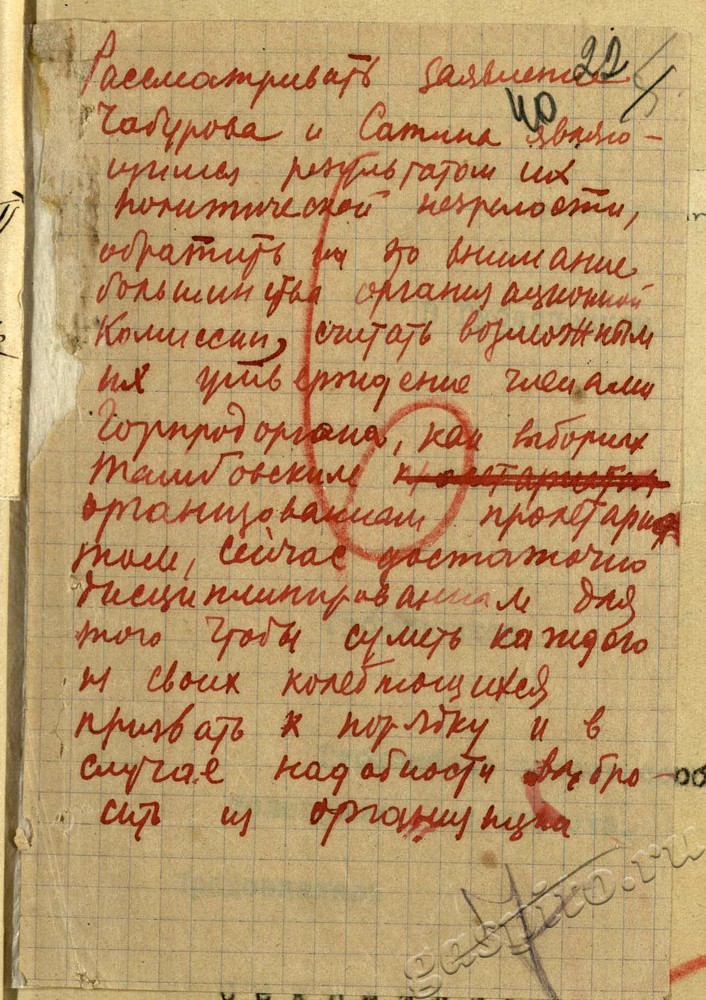 22
40
Рассматривать заявление
Чабурова и Сатина являю-
щимся результатом их
политической незрелости,
обратить на это внимание
большинства организационной
Комиссии, считать возможным
их утверждение членами
Горпродоргана, как выборных
тамбовским пролетариатом
организованным пролетариа
том, сейчас достаточно
дисциплинированным для
того чтобы суметь каждого
из своих колеблющихся
призвать к порядку и в
случае надобности выбро-
сить из организации
gaspito.ru